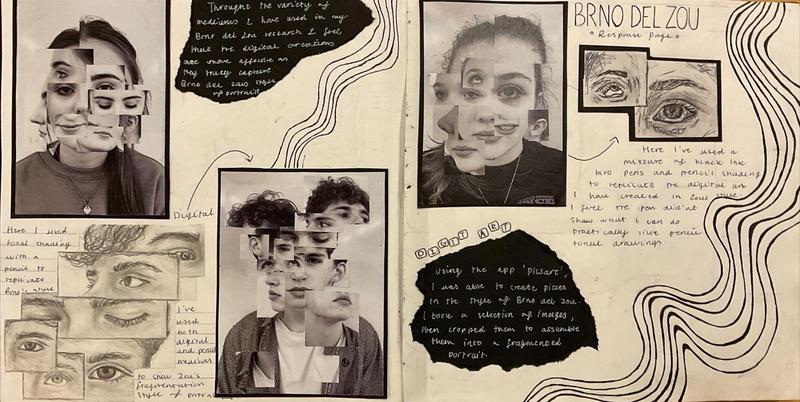 Throught the variety of
mediums I have used in my
Brno del Zou research I feel
that the digital creations
are more effective as
they truly capture
Brno del Zous style
of portrait.
Digital
Here I used
tonal shading
with a
pencil to
replicate
Brno's style
I've
used
both
digital
and pencil
mediums
to show Zou's
fragmentation
style of
BRNO DEL ZOU
Response Page
Here I've used a
mixture of black ink
biro pens and pencil shading
to replicate the digital art
I have created in Zou's style.
I feel the pen didn't
show what I can do
practically like pencil
tonal drawings
DIGIT ART
Using the app 'picsart',
I was able to create pieces
in the style of Brno del Zou.
I took a selection of images,
then cropped them to assemble
them into a fragmented
portrait.